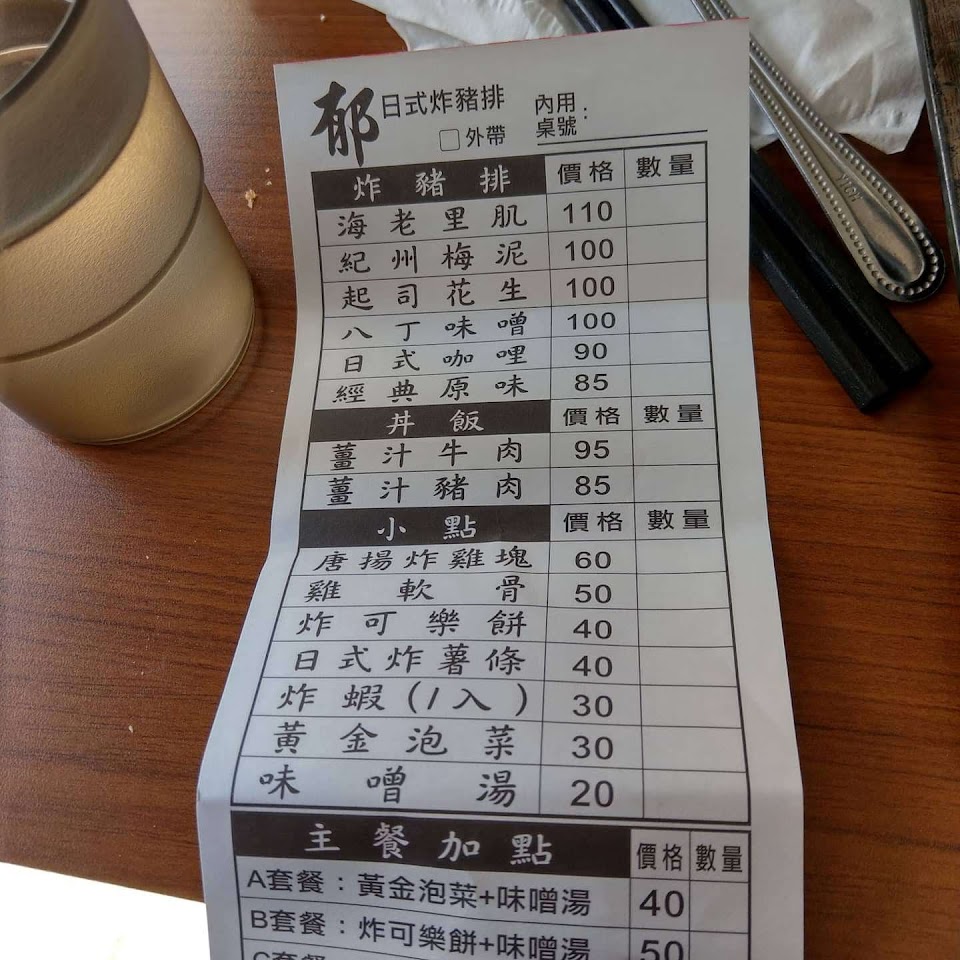 郁 日式炸豬排 內用:
□外帶 桌號:
炸豬排 價格 數量
海老里肌 110
紀州梅泥 100
起司花生 100
八丁味噌 100
日式咖哩 90
經典原味 85
丼飯 價格 數量
薑汁牛肉 95
薑汁豬肉 85
小點 價格 數量
唐揚炸雞塊 60
雞軟骨 50
炸可樂餅 40
日式炸薯條 40
炸蝦(1入) 30
黃金泡菜 30
味噌湯 20
主餐加點 價格 數量
A套餐:黃金泡菜+味噌湯 40
B套餐:炸可樂餅+味噌湯 50
C套餐